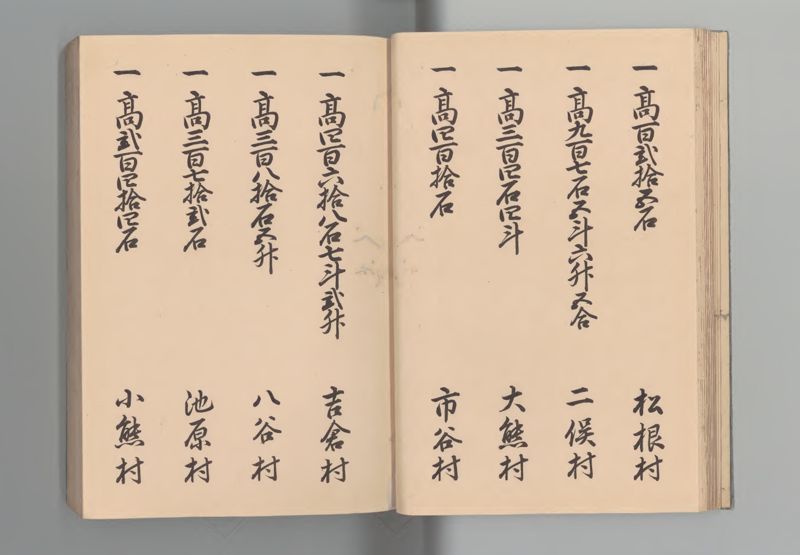 一 高百弐拾五石 松根村
一 高九百七石五斗六升五合 二俣村
一 高三百四石四斗 大熊村
一 高四百拾石 市谷村
一 高四百六拾八石七斗弐升 吉倉村
一 高三百八拾石五升 八谷村
一 高三百七拾弐石 池原村
一 高弐百四拾四石 小熊村